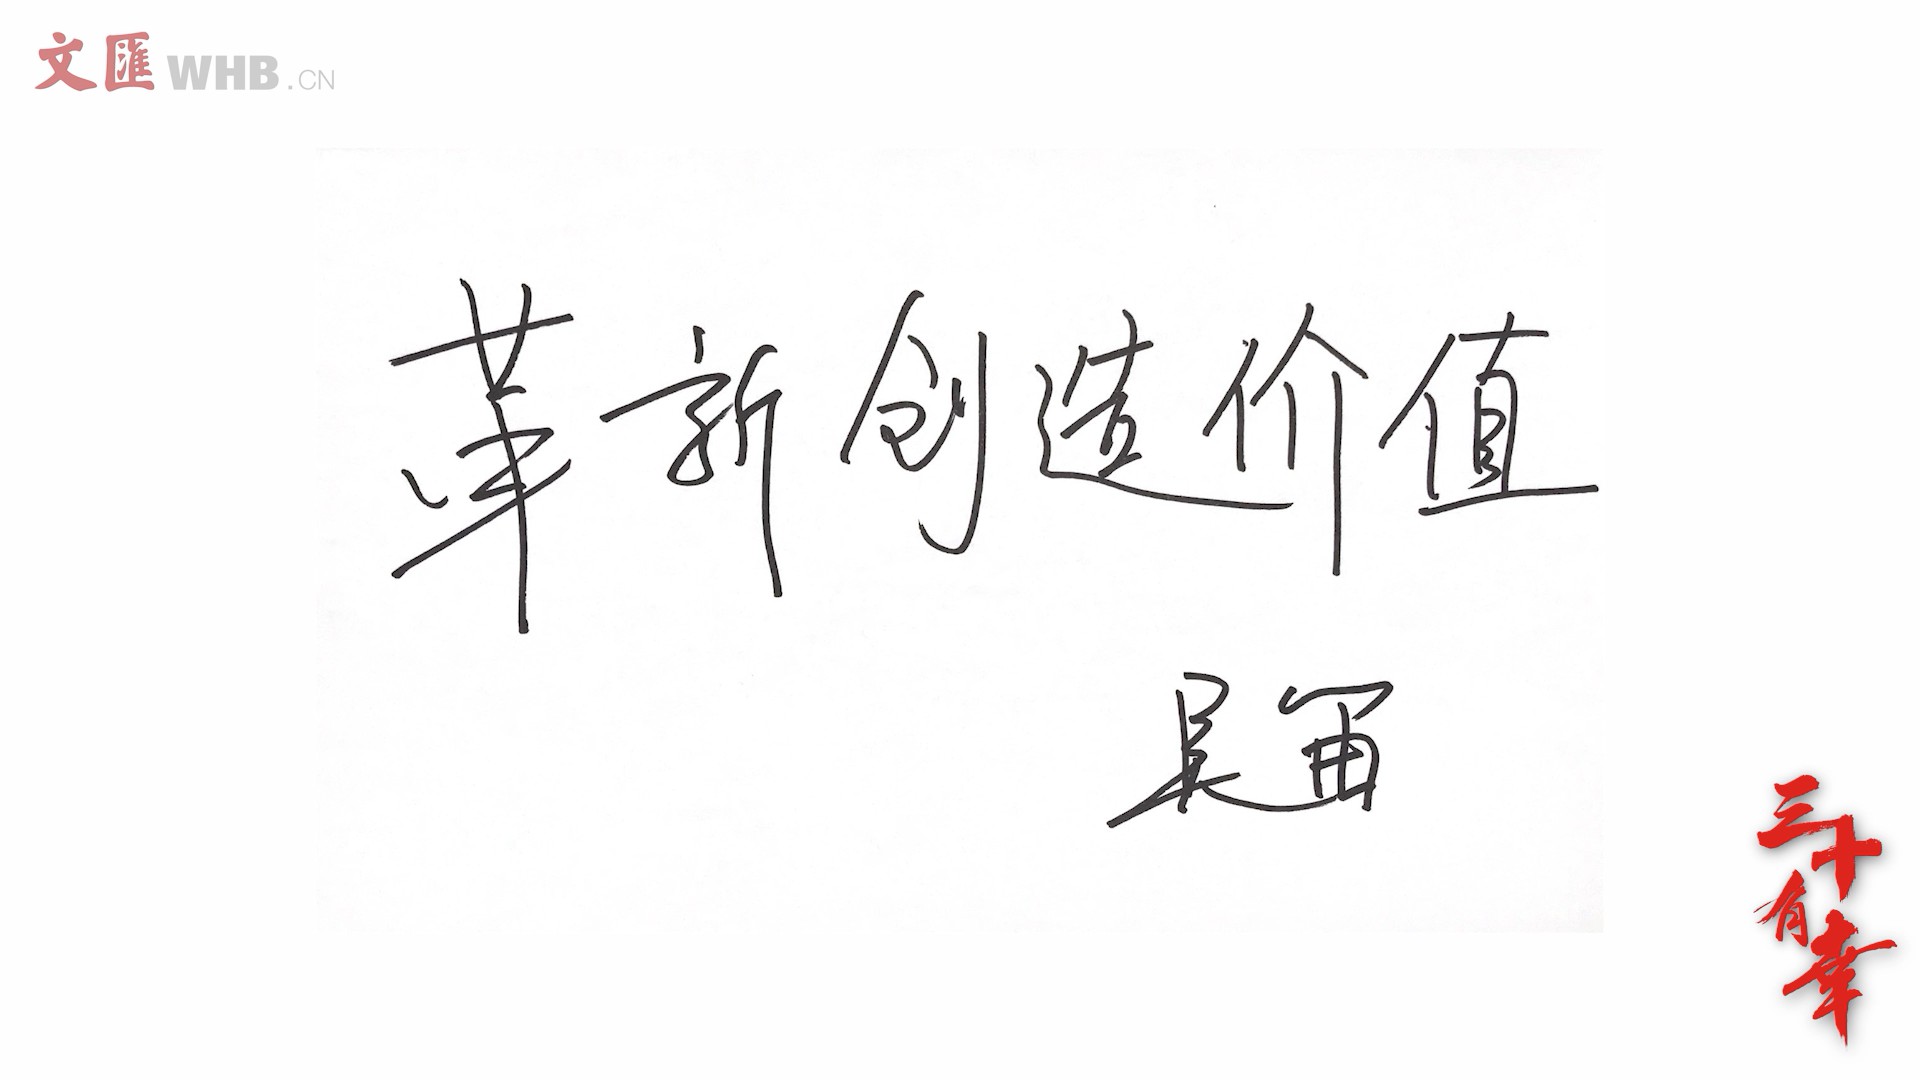 文匯 WHB.CN
革新创造价值
三十
有幸